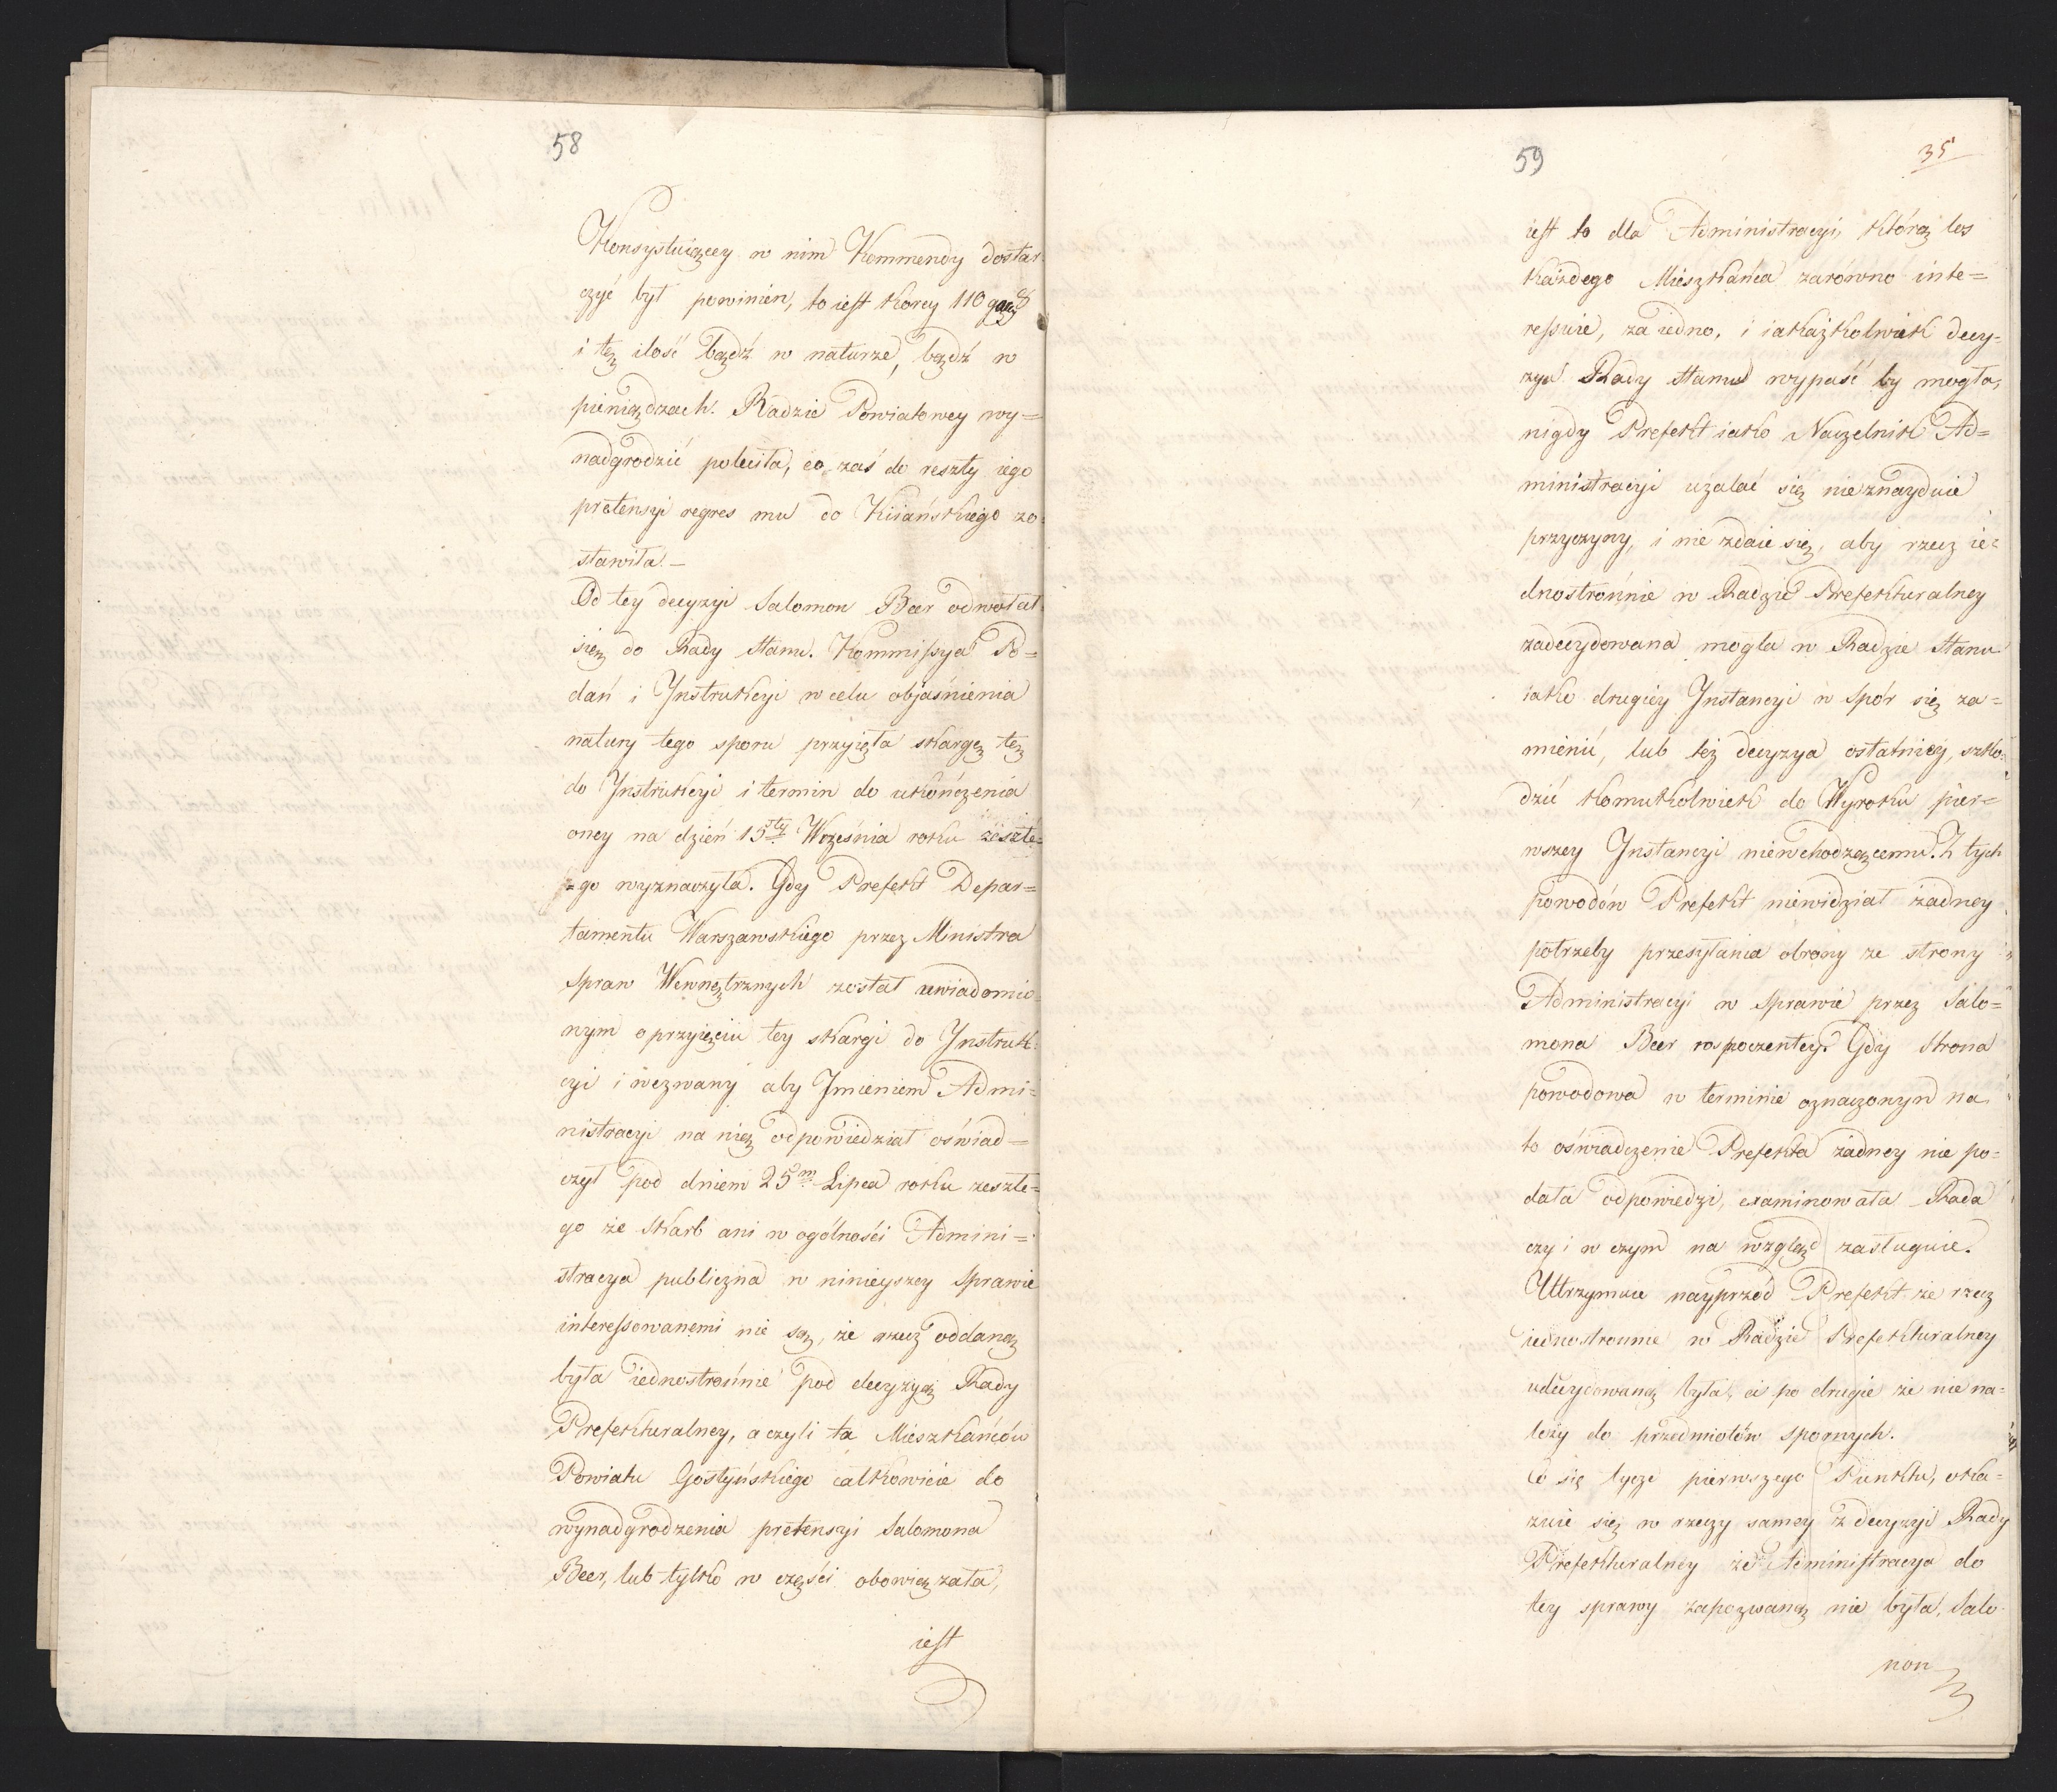 58
Konsystuiącey w nim Kommendy dostar
czyć był powinien, to iest korcy 110 garcy 8
i tę ilość bądź w naturze, bądź w
pieniądzach. Radzie Powiatowey wy=
nadgrodzić poleciła, co zaś do reszty iego
pretensyi regres mu do Kiiańskiego zo=
stawiła.—
Od tey decyzyi Salomon Beer odwołał
się do Rady Stanu. Kommissya Po=
dań i Instrukcyi w celu objaśnienia
natury tego sporu przyięła skargę tę
do Instrukcyi i termin do ukończenia
oney na dzień 15sty Września roku zeszłe=
=go wyznaczyła. Gdy Prefekt Depar=
tamentu Warszawskiego przez Ministra
Spraw Wewnętrznych został uwiadomio=
nym o przyięciu tey skargi do Instruk=
cyi i wezwany aby Imieniem Admi=
nistracyi na nię odpowiedział oświad=
czył pod dniem 25m Lipca roku zeszłe=
go że Skarb ani w ogólności Admini=
stracya publiczna w ninieyszey Sprawie
interessowanemi nie są, że rzecz oddaną
była iednostrońnie pod decyzyą Rady
Prefekturalney, a czyli ta Mieszkańców
Powiatu Gostyńskiego całkowicie do
wynadgrodzenia pretensyi Salomona
Beer, lub tylko w części obowiązała,
iest
59
35
iest to dla Administracyi, którą los
każdego Mieszkańca zarówno inte=
ressuie, za iedno, i iakążkolwiek decy=
zya Rady Stanu wypaść by mogła,
nigdy Prefekt iako Naczelnik Ad=
ministracyi użalać się nieznayduie
przyczyny, i nie zdaie się, aby rzecz ie=
dnostrońnie w Radzie Prefekturalney
zadecydowana mogła w Radzie Stanu
iako drugiey Instancyi w Spór się za=
mienić, lub też decyzya ostatniey, szko=
dzić komukolwiek do Wyroku pier=
wszey Instancyi niewchodzącemu. Z tych
powodów Prefekt niewidział żadney
potrzeby przesyłania obrony ze strony
Administracyi w Sprawie przez Salo=
mona Beer rospoczentey. Gdy Strona
powodowa w terminie oznaczonym na
to oświadczenie Prefekta żadney nie po=
dała odpowiedzi, examinowała Rada
czy i w czym na wzgląd zasługuie.
Utrzymuie nayprzód Prefekt że rzecz
iednostronnie w Radzie Prefekturalney
udecydowaną była, a po drugie że nie na=
leży do przedmiotów spornych.
Co się tycze pierwszego Punktu, oka=
zuie się w rzeczy samey z decyzyi Rady
Prefekturalney że Administracya do
tey sprawy zapozwaną nie była, Salo
mon